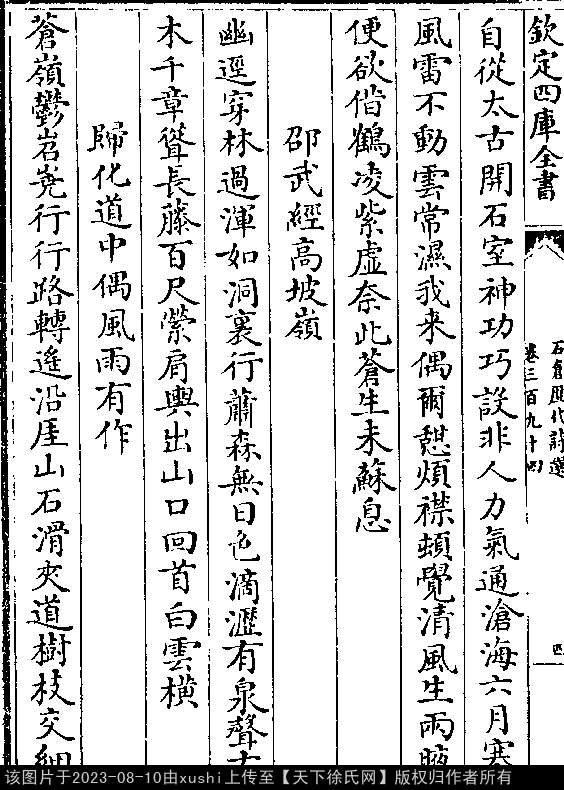 欽定四庫全書
石倉歷代詩選
卷三百九十四
四
自從太古開石室神功巧設非人力氣通滄海六月寒
風雷不動雲常濕我来偶爾憩煩襟頓覺清風生兩腋
便欲偕鶴凌紫虛奈此蒼生未蘇息
邵武經高坡嶺
幽逕穿林過渾如洞裏行蕭森無日色滴瀝有泉聲古
木千章聳長藤百尺縈肩輿出山口回首白雲橫
歸化道中偶風雨有作
蒼嶺鬱岧嶤行行路轉遙沿厓山石滑夾道樹枝交細
该图片于2023-08-10由xushi上传至【天下徐氏网】版权归作者所有